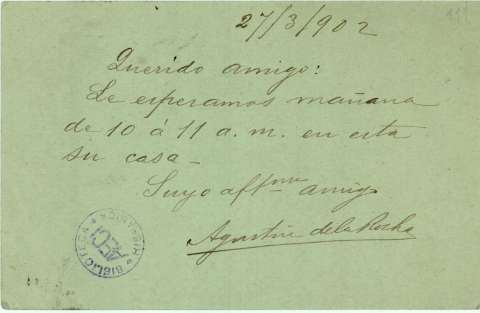 27/3/902
Querido amigo:
Le esperamos mañana
de 10 á 11 a. m. en esta
su casa_
Suyo affmo amigo
Agustin de la Rocha
BIBLIOTECA HISPÁNICA
AECI